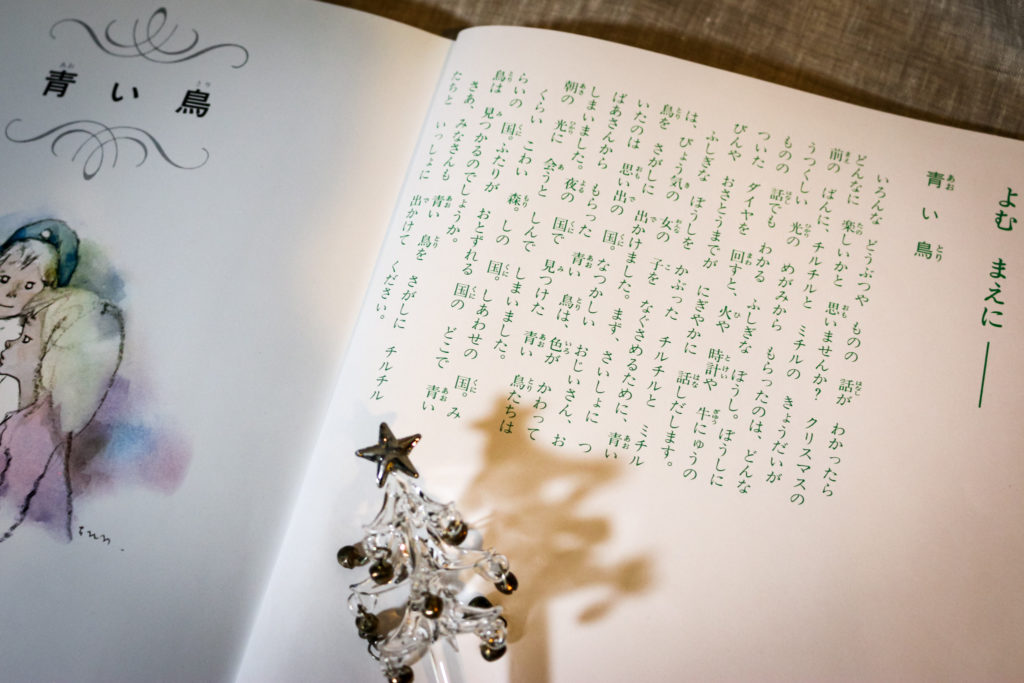 青い鳥
よむ まえに――
青い鳥
いろんな どうぶつや ものの 話が わかったら
どんなに 楽しいかと 思いませんか? クリスマスの
前の ばんに、チルチルと ミチルの きょうだいが
うつくしい 光の めがみから もらったのは、どんな
ものの 話でも わかる ふしぎな ぼうし。ぼうしに
ついた ダイヤを 回すと、火や 時計や 牛にゅうの
びんや おさとうまでが にぎやかに 話しだします。
ふしぎな ぼうしを かぶった チルチルと ミチル
は、びょう気の 女の 子を なぐさめるために、青い
鳥を さがしに 出かけました。まず、さいしょに つ
いたのは 思い出の 国。なつかしい おじいさん、お
ばあさんから もらった 青い 鳥は、色が かわって
しまいました。夜の 国で 見つけた 青い 鳥たちは
朝の 光に 会うと しんで しまいました。
くらい こわい 森。しの 国。しあわせの 国。み
らいの 国。ふたりが おとずれる 国の どこで 青い
鳥は 見つかるのでしょうか。
さあ、みなさんも 青い 鳥を さがしに チルチル
たちと いっしょに 出かけて ください。